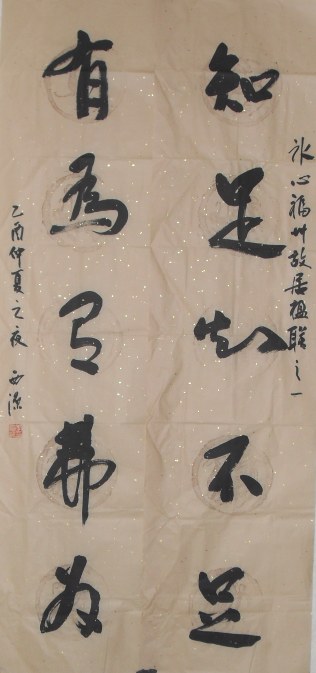 冰心福州故居楹联之一
知足知不足
有為有弗為
乙酉仲夏之夜 西源